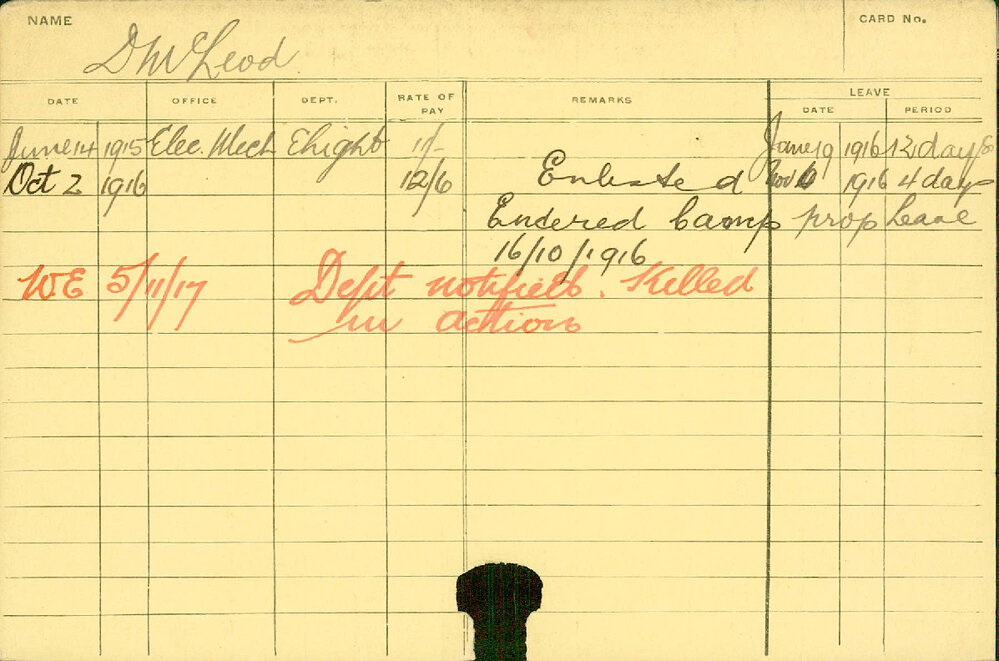 NAME
CARD No.
D McLeod
DATE OFFICE DEPT. RATE OF PAY REMARKS LEAVE
DATE PERIOD
June 14 1915 Elec. Mech Elight 11/- Jany 19 1916 12 days
Oct 2 1916 12/6 Enlisted 1916 4 days
Entered Camp prop Leave
16/10/1916
WE 5/11/17 Dept notified. Killed
in action